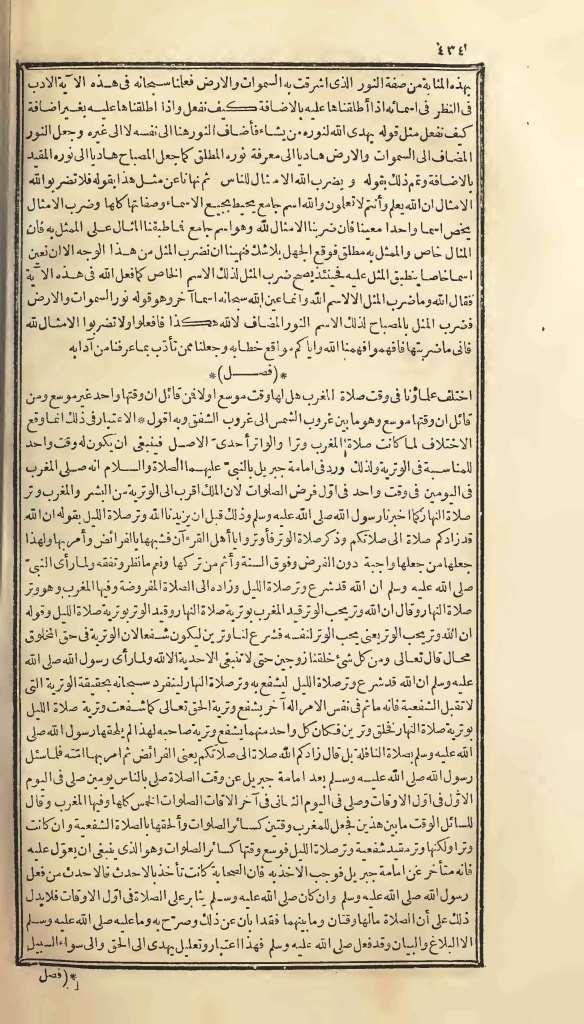 ٤٣٤
بهذه المثابة من صفة النور الذى اشرقت به السموات والارض فعلمنا سبحانه فى هذه الآية الادب
فى النظر فى اسمائه اذا أطلقناها عليه بالاضافة كيف نفعل واذا اطلقناها عليه بغير اضافة
كيف نفعل مثل قوله يهدى الله لنوره من يشاء فأضاف النور هنا الى نفسه لا الى غيره وجعل النور
المضاف الى السموات والارض هاديا الى معرفة نوره المطلق كما جعل المصباح هاديا الى نوره المقيد
بالاضافة وتمم ذلك بقوله ويضرب الله الامثال للناس ثم نهانا عن مثل هذا بقوله فلا تضربوا لله
الامثال ان الله يعلم وأنتم لا تعلمون والله اسم جامع محيط بجميع الاسماء وصفاتها كلها وضرب الامثال
يخص اسما واحدا معينا فان ضربنا الامثال لله وهو اسم جامع فما طبقنا المثال على الممثل به فان
المثال خاص والممثل به مطلق فوقع الجهل بلا شك فنهينا ان نضرب المثل من هذا الوجه الا ان نعين
اسما خاصا ينطبق المثل عليه فحينئذ يصح ضرب المثل لذلك الاسم الخاص كما فعل الله فى هذه الآية
فقال الله وما ضرب المثل الا لاسم الله وانما عين الله سبحانه اسما آخر وهو قوله نور السموات والارض
فضرب المثل بالمصباح لذلك الاسم النور المضاف لا لله هكذا فافعلوا ولا تضربوا الامثال لله
فانى ما ضربتها فافهموا فهمنا الله واياكم مواقع خطابه وجعلنا ممن تأدب بما عرفنا من آدابه
*(فصــل)*
اختلف علماؤنا فى وقت صلاة المغرب هل لها وقت موسع اولا فمن قائل ان وقتها واحد غير موسع ومن
قائل ان وقتها موسع وهو ما بين غروب الشمس الى غروب الشفق وبه اقول * الاعتبار فى ذلك انما وقع
الاختلاف لما كانت صلاة المغرب وترا والوتر أحدىّ الاصل فينبغى ان يكون له وقت واحد
للمناسبة فى الوترية ولذلك ورد فى امامة جبريل بالنبىّ عليهما الصلاة والسلام انه صلى المغرب
فى اليومين فى وقت واحد فى اوّل فرض الصلوات لان الملك اقرب الى الوترية من البشر والمغرب وتر
صلاة النهار كما اخبرنا رسول الله صلى الله عليه وسلم وذلك قبل ان يزيدنا الله وتر صلاة الليل بقوله ان الله
قد زادكم صلاة الى صلاتكم وذكر صلاة الوتر فأوتروا يا أهل القرءآن فشبهها بالفرائض وأمر بها ولهذا
جعلها من جعلها واجبة دون الفرض وفوق السنة وأثم من تركها ونعم ما نظر وتفقه ولما رأى النبىّ
صلى الله عليه وسلم ان الله قد شرع وتر صلاة الليل وزاده الى الصلاة المفروضة وفيها المغرب وهو وتر
صلاة النهار وقال ان الله وتر يحب الوتر قيد المغرب بوترية صلاة النهار وقيد الوتر بوترية صلاة الليل وقوله
ان الله وتر يحب الوتر يعنى يحب الوتر لنفسه فشرع لنا وترين ليكون شفعا لان الوترية فى حق المخلوق
محال قال تعالى ومن كل شئ خلقنا زوجين حتى لا تنبغى الاحدية الا لله ولما رأى رسول الله صلى الله
عليه وسلم ان الله قد شرع وتر صلاة الليل ليشفع به وتر صلاة النهار لينفرد سبحانه بحقيقة الوترية التى
لا تقبل الشفعية فانه ما ثم فى نفس الامر اله آخر يشفع وترية الحق تعالى كما شفعت وترية صلاة الليل
بوترية صلاة النهار فخلق وترين فكان كل واحد منهما يشفع وترية صاحبه لهذا لم يلحقها رسول الله صلى
الله عليه وسلم بصلاة النافلة بل قال زادكم الله صلاة الى صلاتكم يعنى الفرائض ثم امر بها امته فلما سئل
رسول الله صلى الله عليه وسلم بعد امامة جبريل عن وقت الصلاة صلى بالناس يومين صلى فى اليوم
الاوّل فى اوّل الاوقات وصلى فى اليوم الثانى فى آخر الاوقات الصلوات الخمس كلها وفيها المغرب وقال
للسائل الوقت ما بين هذين فجعل للمغرب وقتين كسائر الصلوات وألحقها بالصلاة الشفعية وان كانت
وترا ولكنها وتر مقيد شفعية وتر صلاة الليل فوسع وقتها كسائر الصلوات وهو الذى ينبغى ان يعوّل عليه
فانه متأخر عن امامة جبريل فوجب الاخذ به فان الصحابة كانت تأخذ بالاحدث فالاحدث من فعل
رسول الله صلى الله عليه وسلم وان كان صلى الله عليه وسلم يثابر على الصلاة فى اوّل الاوقات فلا يدل
ذلك على أن الصلاة ما لها وقتان وما بينهما فقد ابان عن ذلك وصرّح به وما عليه صلى الله عليه وسلم
الا البلاغ والبيان وقد فعل صلى الله عليه وسلم فهذا اعتبار وتعليل يهدى الى الحق والى سواء السبيل
*(فصل